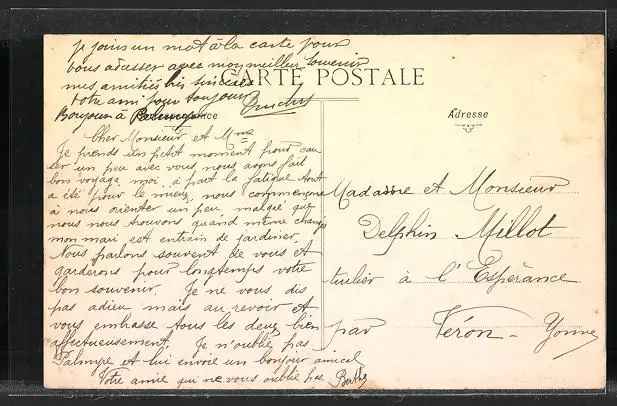 je joins un mot à la carte pour
vous adresser avec mon meilleur souvenir
mes amitiés les sincères
votre ami pour toujours
Bonjour à
CARTE POSTALE
Adresse
Cher Monsieur et Mme
Je prends un petit moment pour cau
ser un peu avec vous nous avons fait
bon voyage moi à part la fatigue tout
a été pour le mieux, nous commençons
à nous orienter un peu malgré que
nous nous trouvons quand même changés
mon mari est entrain de jardinier.
Nous parlons souvent de vous et
garderons pour longtemps votre
bon souvenir. Je ne vous dis
pas adieu mais au revoir et
vous embrasse tous les deux bien
affectueusement. Je n'oublie pas
Palmyre et lui envoie un bonjour amical
Votre amie qui ne vous oublie pas Berthe
Madame et Monsieur
Delphin Millot
tuilier à l'Espérance
par Véron - Yonne